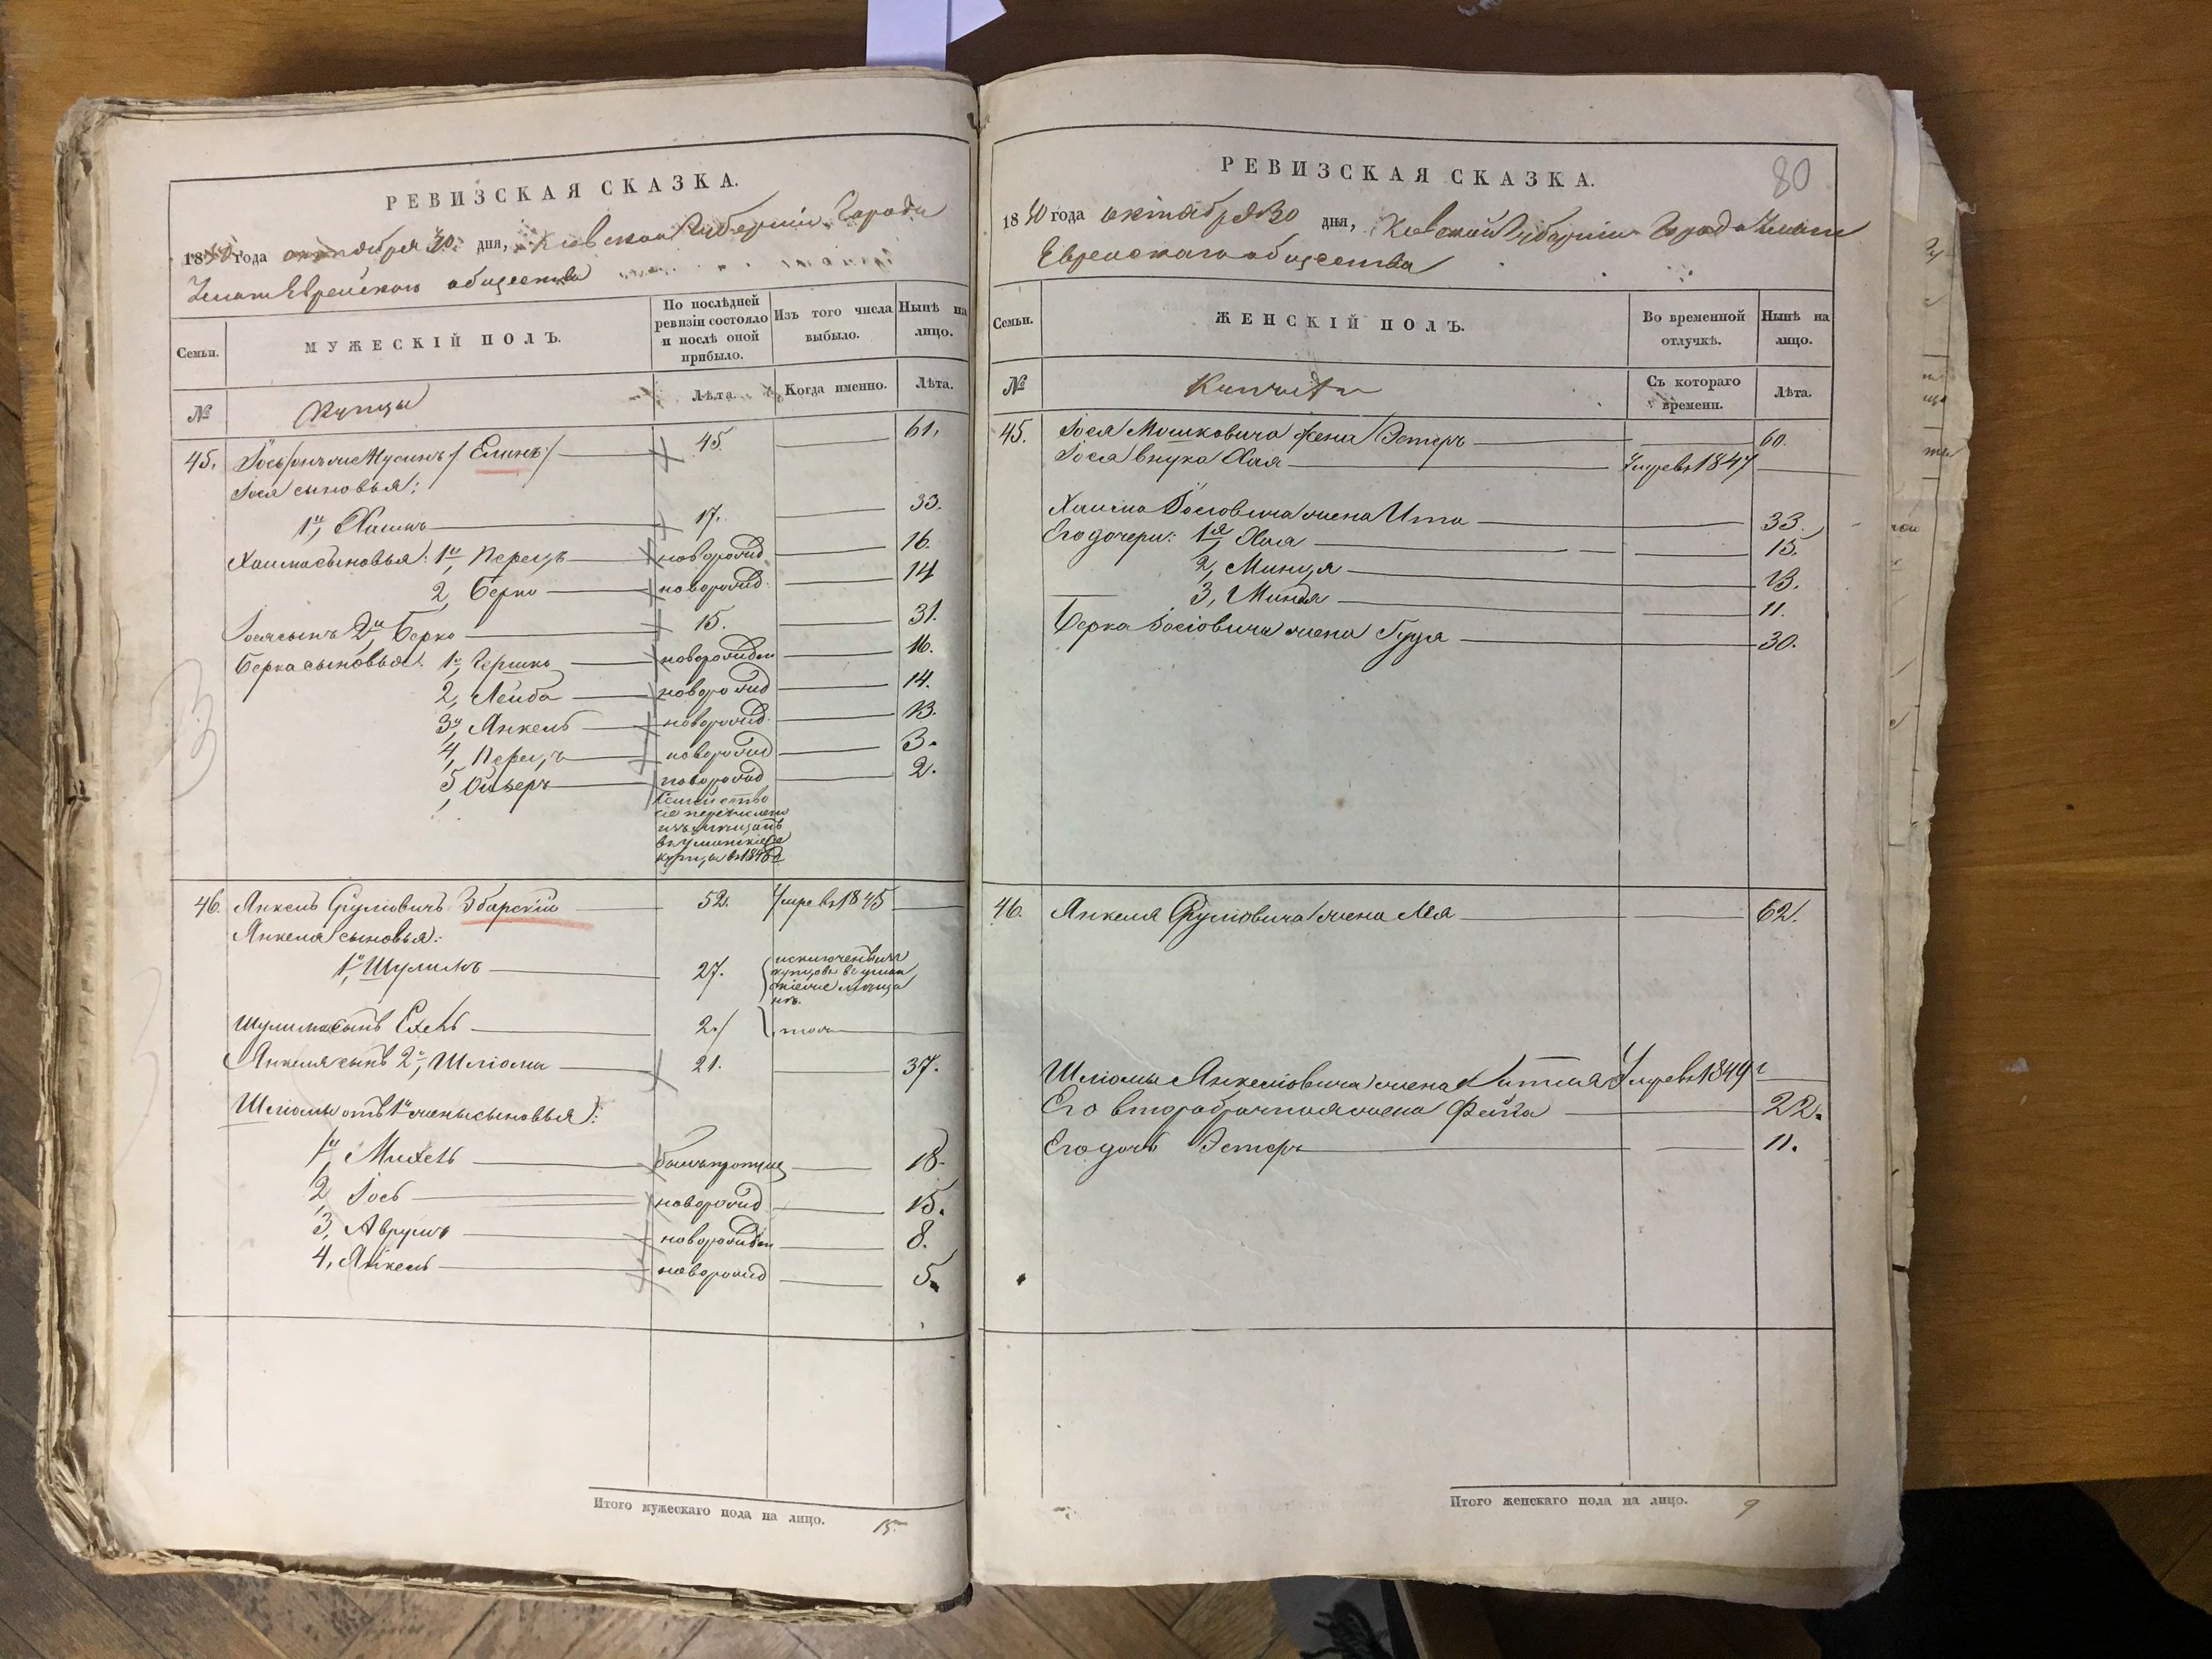 РЕВИЗСКАЯ СКАЗКА.
1850 года октября 30 дня, Кіевской Губерніи Города
Умани Еврейскаго общества
Семьи.
МУЖЕСКІЙ ПОЛЪ.
По послѣдней ревизіи состояло и послѣ оной прибыло.
Изъ того числа выбыло.
Нынѣ на лицо.
№
Купцы
Лѣта.
Когда именно.
Лѣта.
45. Іось Елинъ 45. 61.
Іося сыновья:
1й, Хаимъ 17. 33.
Хаима сыновья: 1й, Перецъ новорожд 16.
2, Берко новорожд. 14
Іося сынъ 2й Берко 15. 31.
Берка сыновья: 1й, Гершко новорожден 16.
2, Лейба новорожд 14.
3й, Янкель новорожд. 13.
4, Перецъ новорожд 3.
5, Ойзеръ новорожд 2.
Семейство
сіе перечислено
изъ мѣщанъ
въ уманскіе
купцы въ 1846
46. Янкель Сруліовичъ Збарскій 52. Умре въ 1845
Янкеля сыновья:
1й, Шулимъ 27. исключенъ изъ
купцовъ въ уман
скіе мѣща
не.
Шулима сынъ Ехель 2. тоже
Янкеля сынъ 2й, Шліома 21. 37.
Шліомы отъ 1й жены сыновья:
1й, Михель 18.
2, Іось новорожд 15.
3, Аврумъ новорожден 8.
4, Янкель новорожд 5.
Итого мужескаго пола на лицо. 15.
80
РЕВИЗСКАЯ СКАЗКА.
1850 года октября 30 дня, Кіевской Губерніи Города Умани
Еврейскаго общества
Семьи.
ЖЕНСКІЙ ПОЛЪ.
Во временной отлучкѣ.
Нынѣ на лицо.
№
Съ котораго времени.
Лѣта.
45. Іося Мошковича жена Эстеръ 60.
Іося внука Хая Умре въ 1847
Хаима Іосіовича жена Ита 33.
Его дочери: 1я, Хая 15.
2, Минця 13.
3, Миндя 11.
Берка Іосіовича жена Гудя 30.
46. Янкеля Сруліовича жена Лея 62.
Шліомы Янкеліовича жена Умре въ 1849 г
Его второбрачная жена Фейга 22.
Его дочь Эстеръ 11.
Итого женскаго пола на лицо. 9